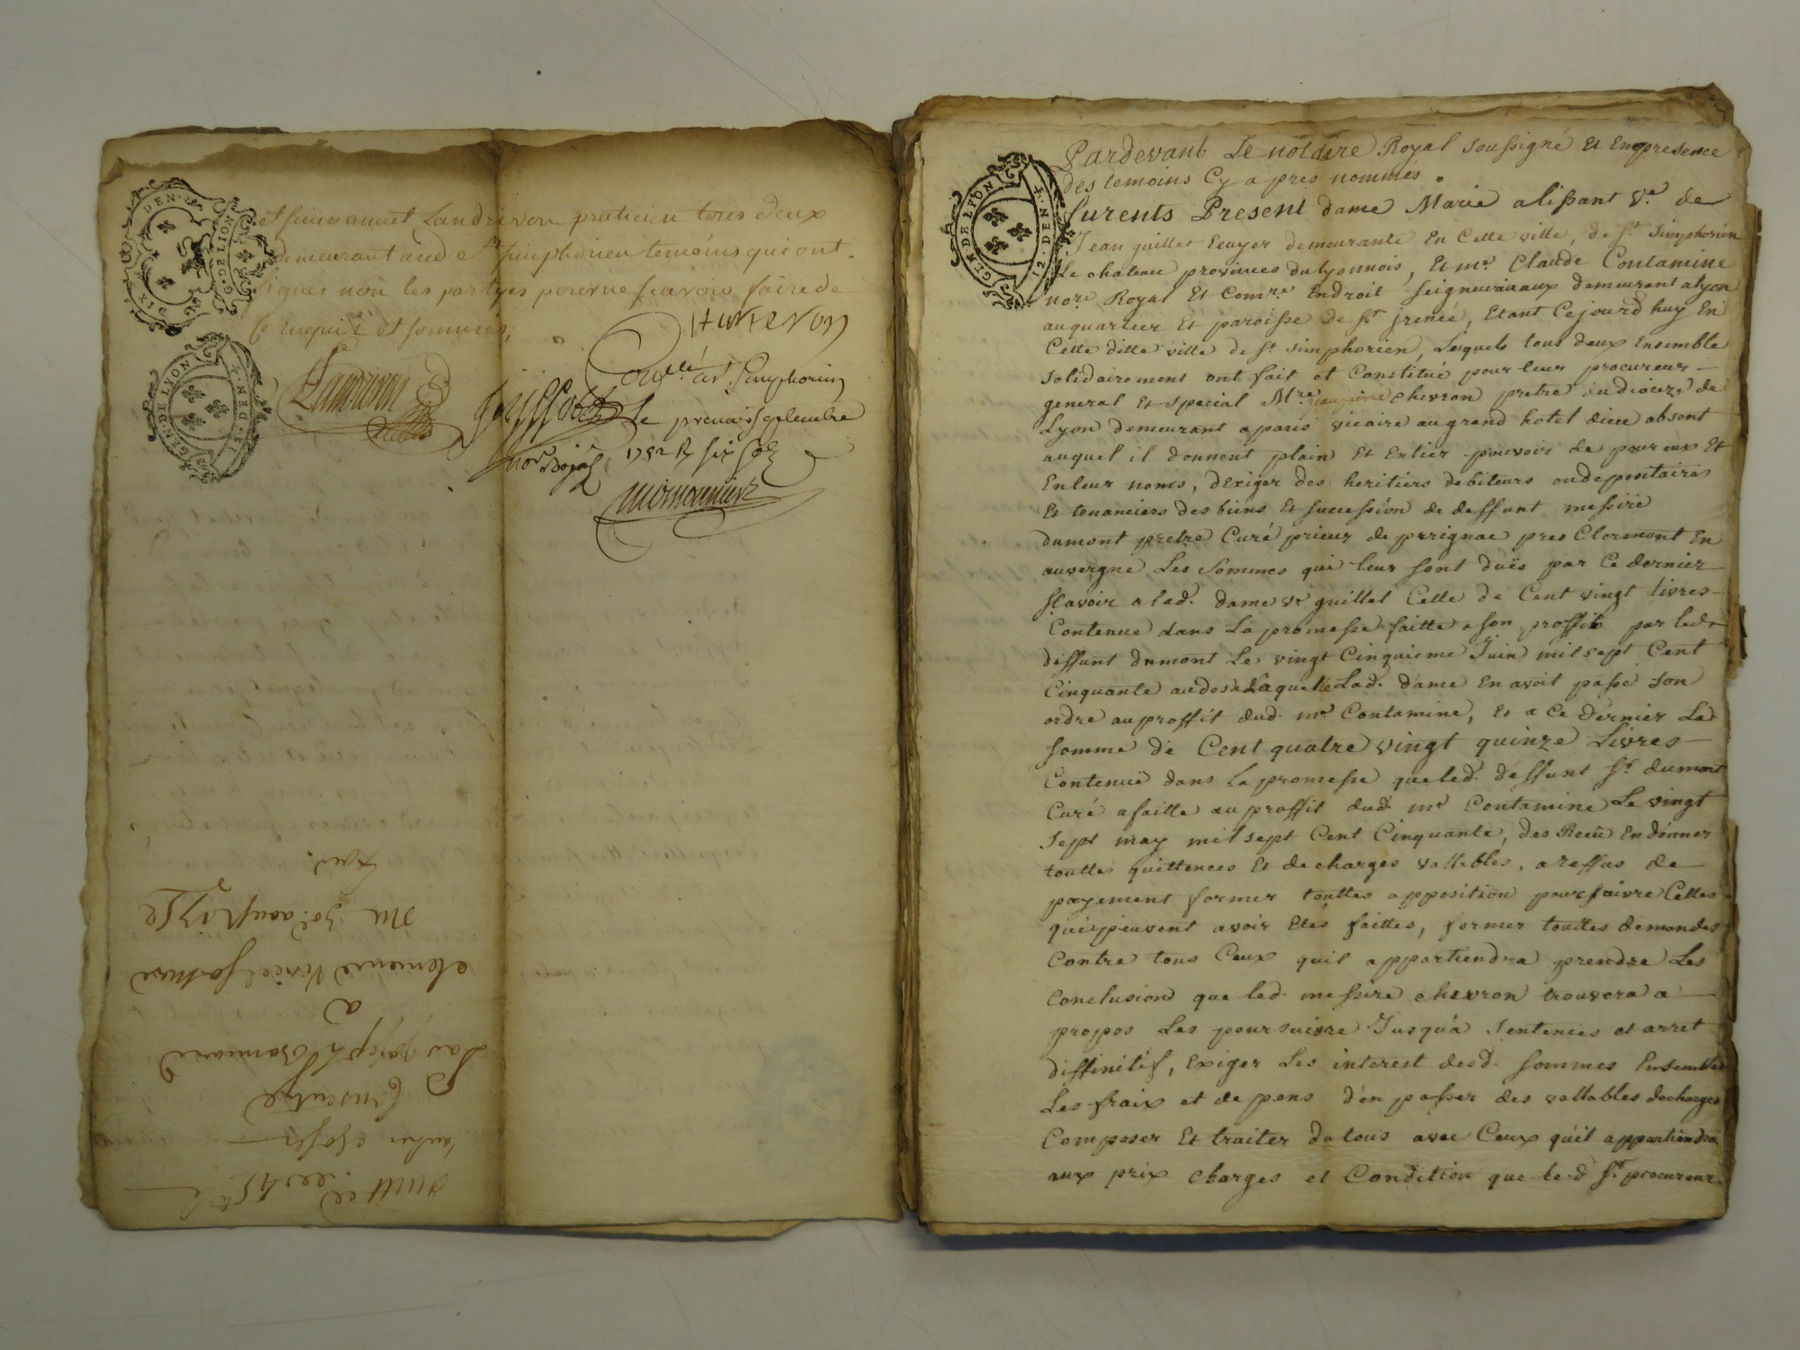 et sieur annet Landrivon praticien tous deux
demeurant aud St Simphorien temoins qui ont
signés non les partyes pour ne scavoir faire de
ce Enquis et sommés,
Contllé a St Simphorien
Le premier septembre
1752 R six sols
not Royal
GEN DE LYON
Pardevant Le notaire Royal soussigné Et Enpresence
des temoins Cy apres nommés.
furents Present dame Marie alissant Ve de
Jean guillet Ecuyer demeurante En Cette ville, de St Simphorien
Le chateau provinces du Lyonnois, Et me Claude Contamine
nore Royal Et Comre Endroit seigneuriaux demeurant a Lyon
auquartier Et paroisse de St jrenée, Etant Cejourd'huy En
Cette ditte ville de St simphorien, Lesquels tous deux Ensemble
solidairement ont fait et Constitué pour leur procureur
general Et special Mre chevron pretre du dioceze de
Lyon demeurant a paris vicaire au grand hotel dieu absent
auquel il donnent plain Et Entier pouvoir de pour eux Et
En leur noms, dExiger des heritiers debiteurs ou depositaires
Et tenanciers des biens Et succession de deffunt messire
dumont pretre Curé prieur de perignac pres Clermont En
auvergne Les sommes qui leur sont duës par Ce dernier
scavoir a lad. dame ve guillet Celle de Cent vingt livres
Contenue dans La promesse faitte a son proffit par led
diffunt dumont Le vingt Cinquieme Juin mil sept Cent
Cinquante au dos de Laquelle Lad. dame En avoit passé son
ordre au proffit dud. me Contamine, Et a Ce dernier La
somme de Cent quatre vingt quinze Livres
Contenuë dans La promesse que led. deffunt Sr dumont
Curé a faitte au proffit dud. me Contamine Le vingt
sept may mil sept Cent Cinquante, des Recû En donner
touttes quittences Et decharges vallables, a reffus de
payement former touttes opposition poursuivre Celles
qui peuvent avoir Etés faittes, former touttes demandes
Contre tous Ceux quil appartiendra prendre Les
Conclusion que led. messire chevron trouvera a
propos Les poursuivre Jusqu'a sentences et arret
diffinitif, Exiger Les interest desd. sommes Ensembles
Les fraix et depens d'en passer des vallables decharges
Composer Et traiter du tous avec Ceux qu'il appartiendra
aux prix charges et Condition que led Sr procureur